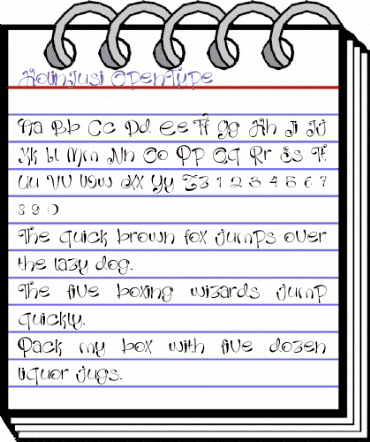 Kolinkusi OpenType
Aa Bb Cc Dd Ee Ff Gg Hh Ii Jj
Kk Ll Mm Nn Oo Pp Qq Rr Ss Tt
Uu Vv Ww Xx Yy Zz 1 2 3 4 5 6 7
8 9 0
The quick brown fox jumps over
the lazy dog.
The five boxing wizards jump
quickly.
Pack my box with five dozen
liquor jugs.